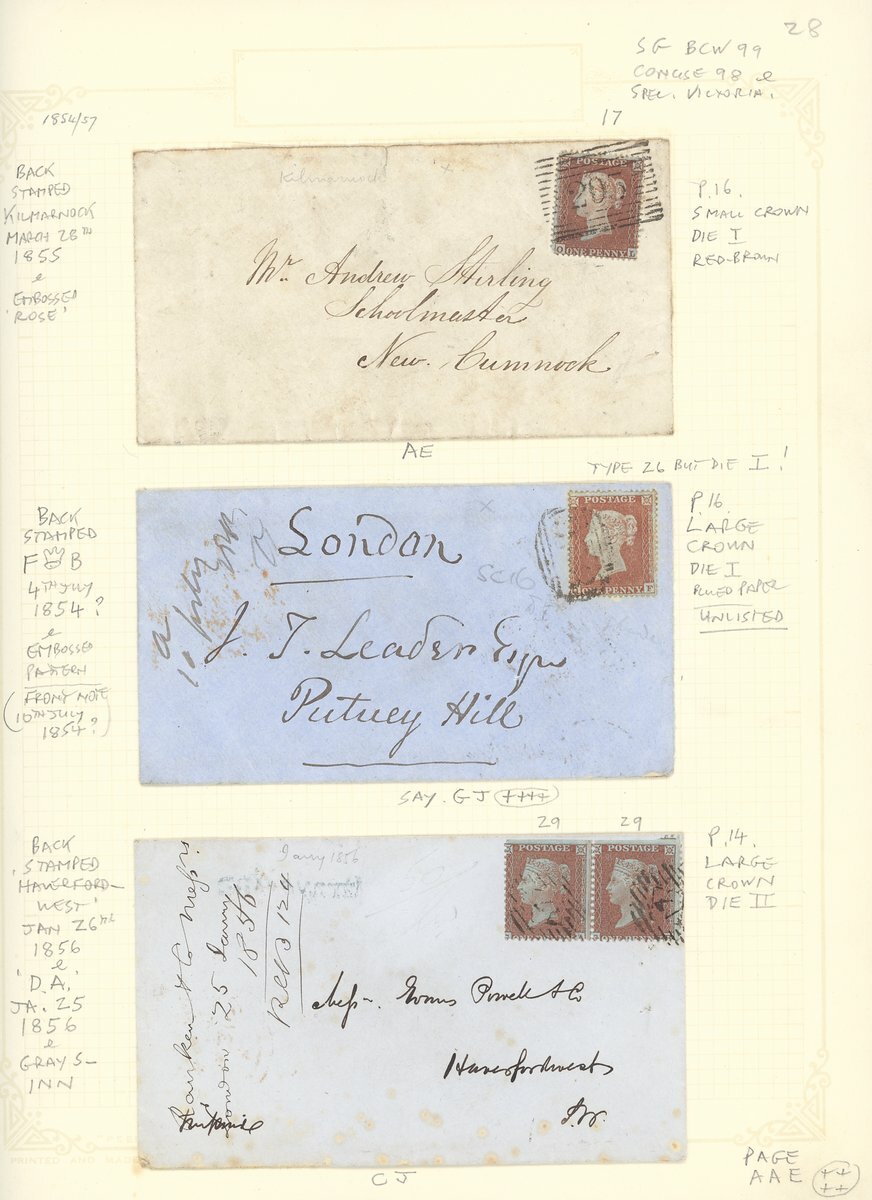 28
SG BCW 99
CONCISE 98 &
SPEC. VICTORIA.
1854/57
17
BACK
STAMPED
KILMARNOCK
MARCH 28TH
1855
&
EMBOSSED
'ROSE'
Kilmarnock
POSTAGE
ONE PENNY
Mr. Andrew Stirling
Schoolmaster
New. Cumnock
P.16.
SMALL CROWN
DIE I
RED-BROWN
AE
TYPE 26 BUT DIE I!
BACK
STAMPED
F B
4TH JULY
1854?
&
EMBOSSED
PATTERN
(FRONT NOTE
10TH JULY
1854?)
London
SC16
POSTAGE
ONE PENNY
J. T. Leader Esqr
Putney Hill
P.16.
LARGE
CROWN
DIE I
BLUED PAPER
UNLISTED
SAY. GJ ++++
29 29
BACK
'STAMPED
HAVERFORD-
WEST'
JAN 26TH
1856
&
'D.A.'
JA. 25
1856
&
GRAYS-
INN
Jany 1856
London 25 Jany
1856
POSTAGE POSTAGE
Messrs. Evans Powell & Co
Haverfordwest
P.14.
LARGE
CROWN
DIE II
CJ
PAGE
AAE ++
++
PRINTED AND MADE